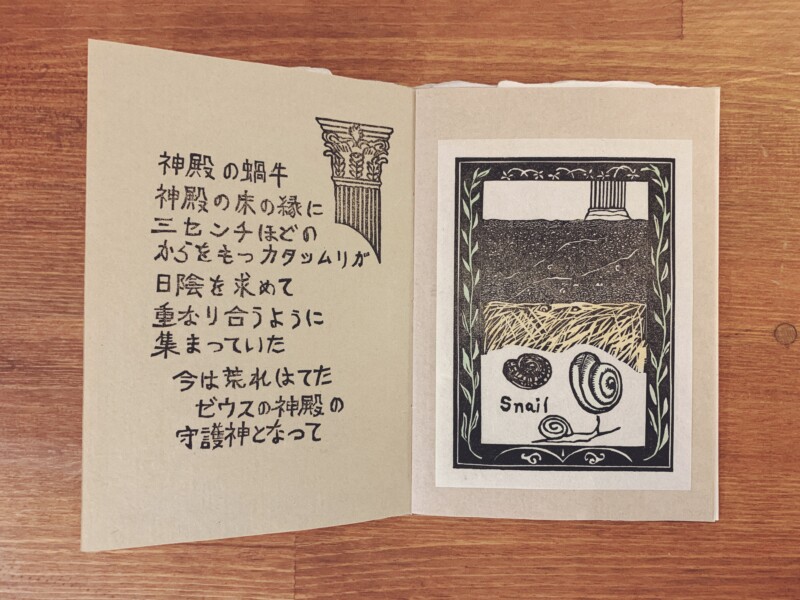 神殿の蝸牛
神殿の床の縁に
三センチほどの
からをもつカタツムリが
日陰を求めて
重なり合うように
集まっていた
今は荒れはてた
ゼウスの神殿の
守護神となって
Snail